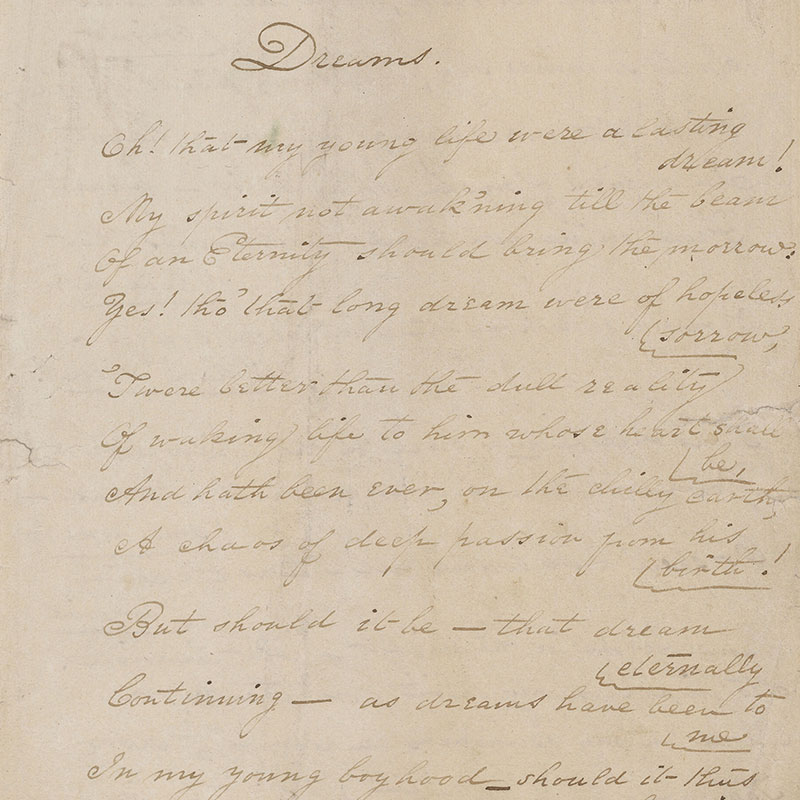 Dreams.
Oh! that my young life were a lasting
dream!
My spirit not awak'ning till the beam
Of an Eternity should bring the morrow:
Yes! tho' that long dream were of hopeless
sorrow,
'Twere better than the dull reality
Of waking life to him whose heart shall
be,
And hath been ever, on the chilly earth,
A chaos of deep passion from his
birth!
But should it be — that dream
eternally
Continuing — as dreams have been to
me
In my young boyhood — should it thus